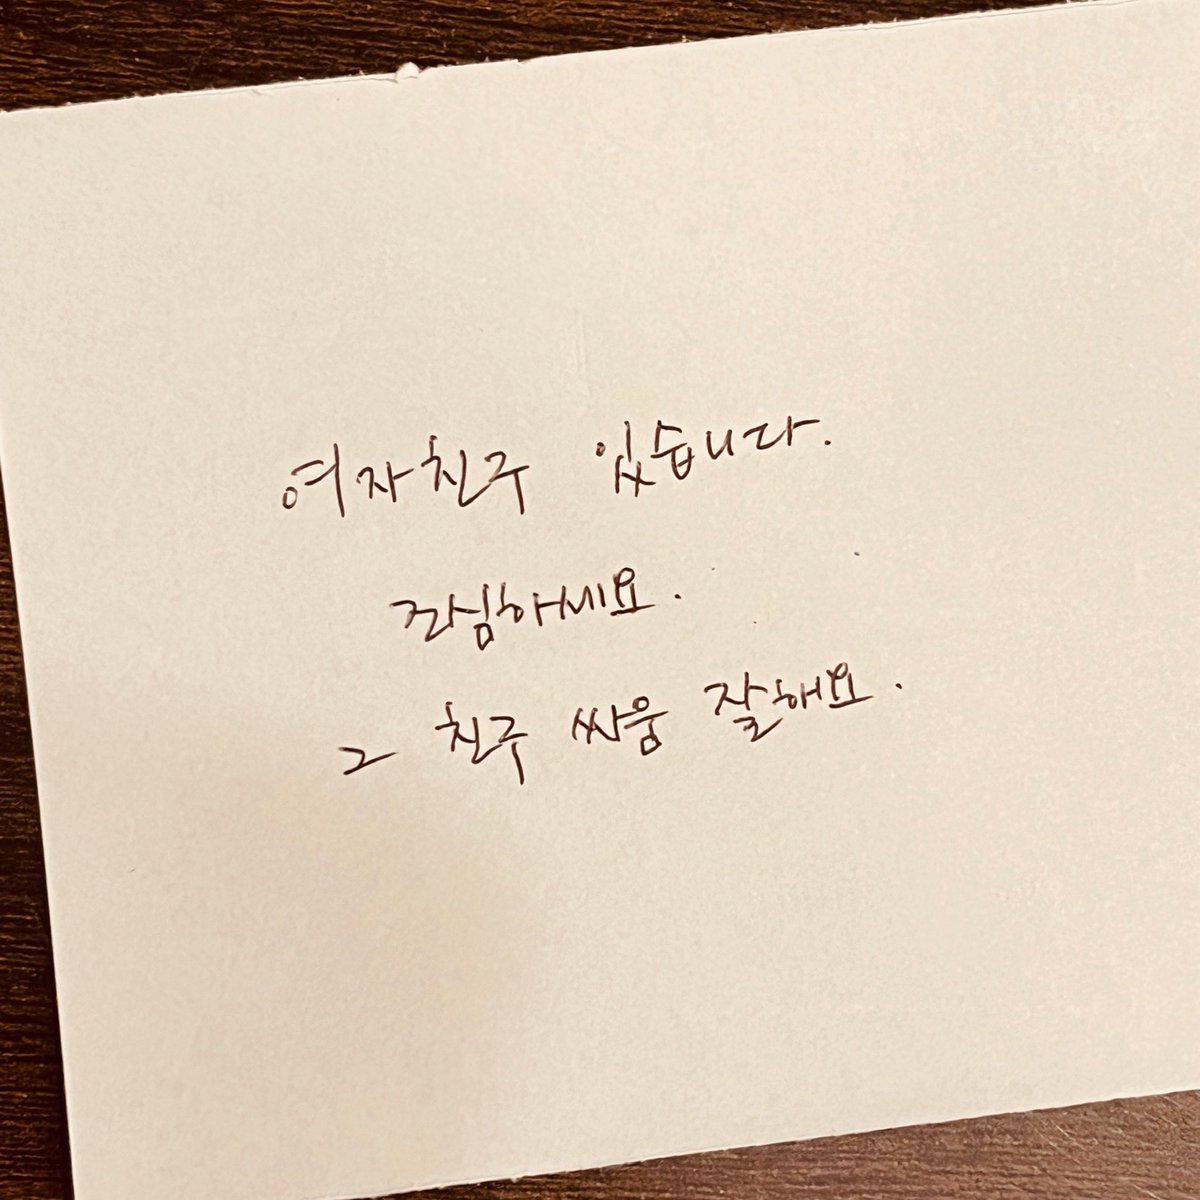 여자친구 있습니다.
조심하세요.
그 친구 싸움 잘해요.